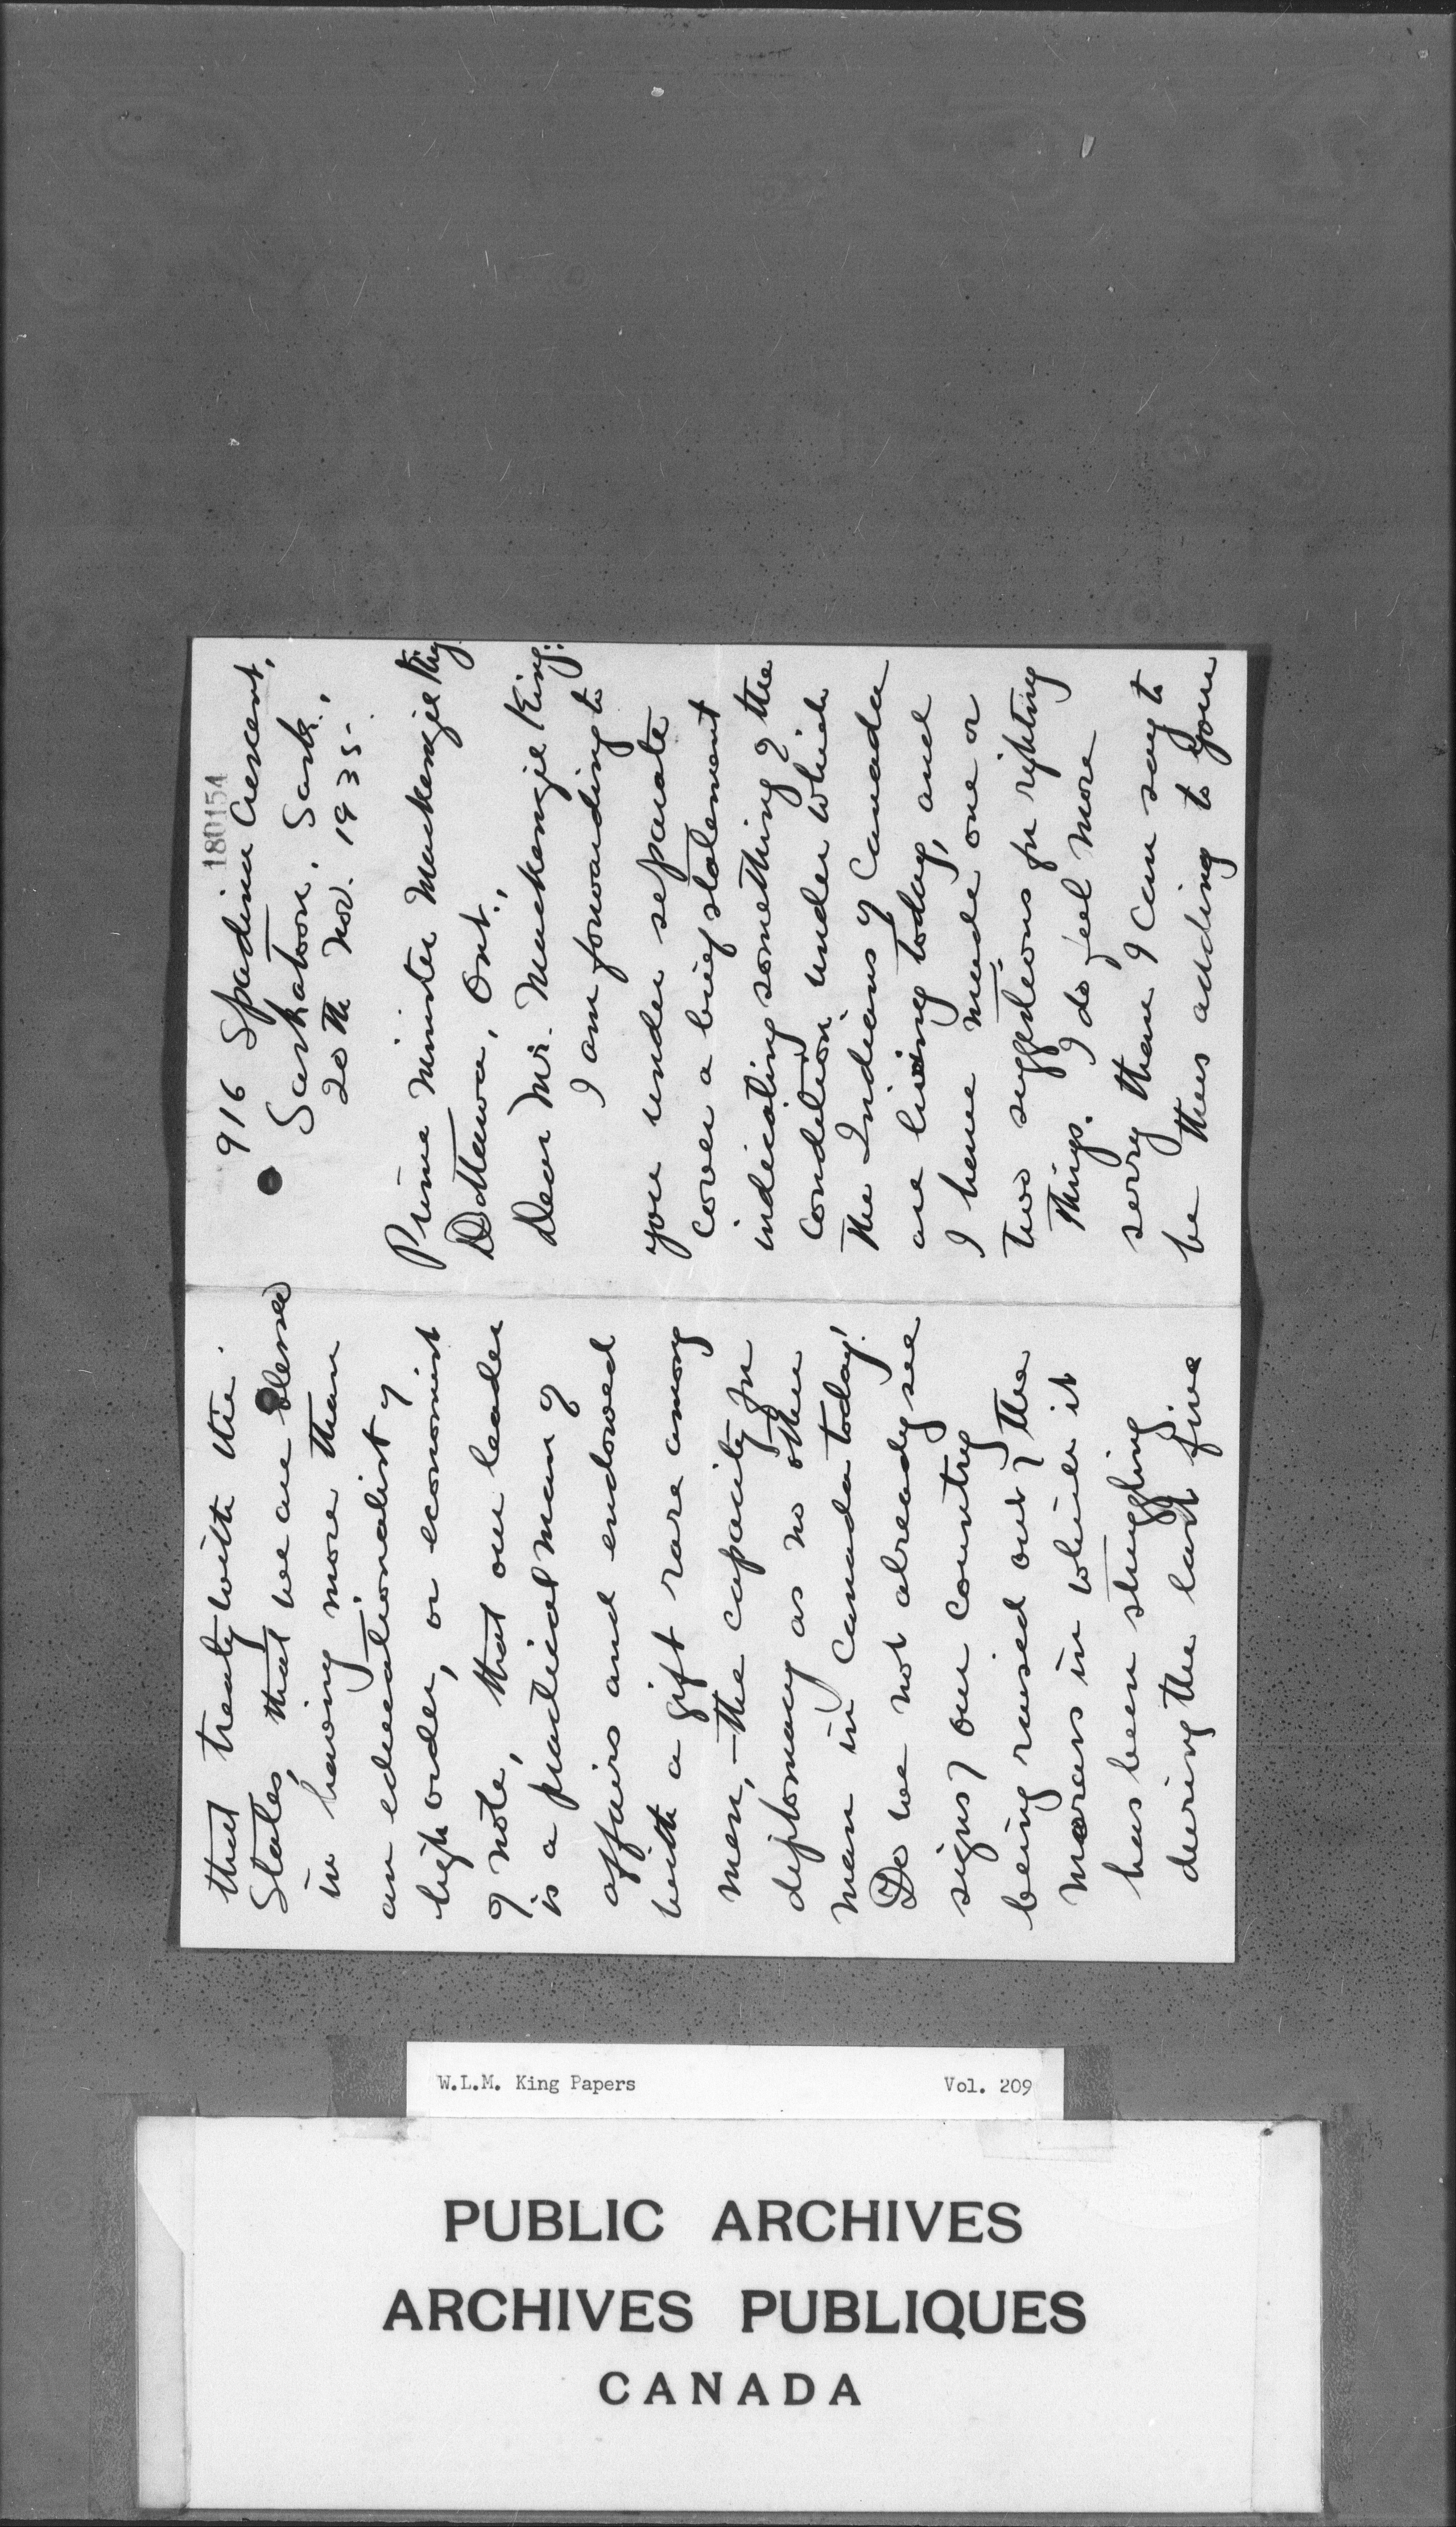 180154
916 Spadina Crescent,
Saskatoon, Sask.,
20th Nov. 1935.
Prime Minister Mackenzie King
Ottawa, Ont.,
Dear Mr. Mackenzie King:
I am forwarding to
you under separate
cover a brief statement
indicating something of the
condition under which
the Indians of Canada
are living today, and
I have made one or
two suggestions for righting
things. I do feel more
sorry than I can say to
be thus adding to your
that treaty with the
States, that we are blessed
in having more than
an educationalist of
high order, or economist
of note, that our leader
is a practical man of
affairs and endowed
with a gift rare among
men,—the capacity for
diplomacy as no other
man in Canada today!
Do we not already see
signs of our country
being raised out of the
morass in which it
has been struggling
during the last five
W.L.M. King Papers Vol. 209
PUBLIC ARCHIVES
ARCHIVES PUBLIQUES
CANADA